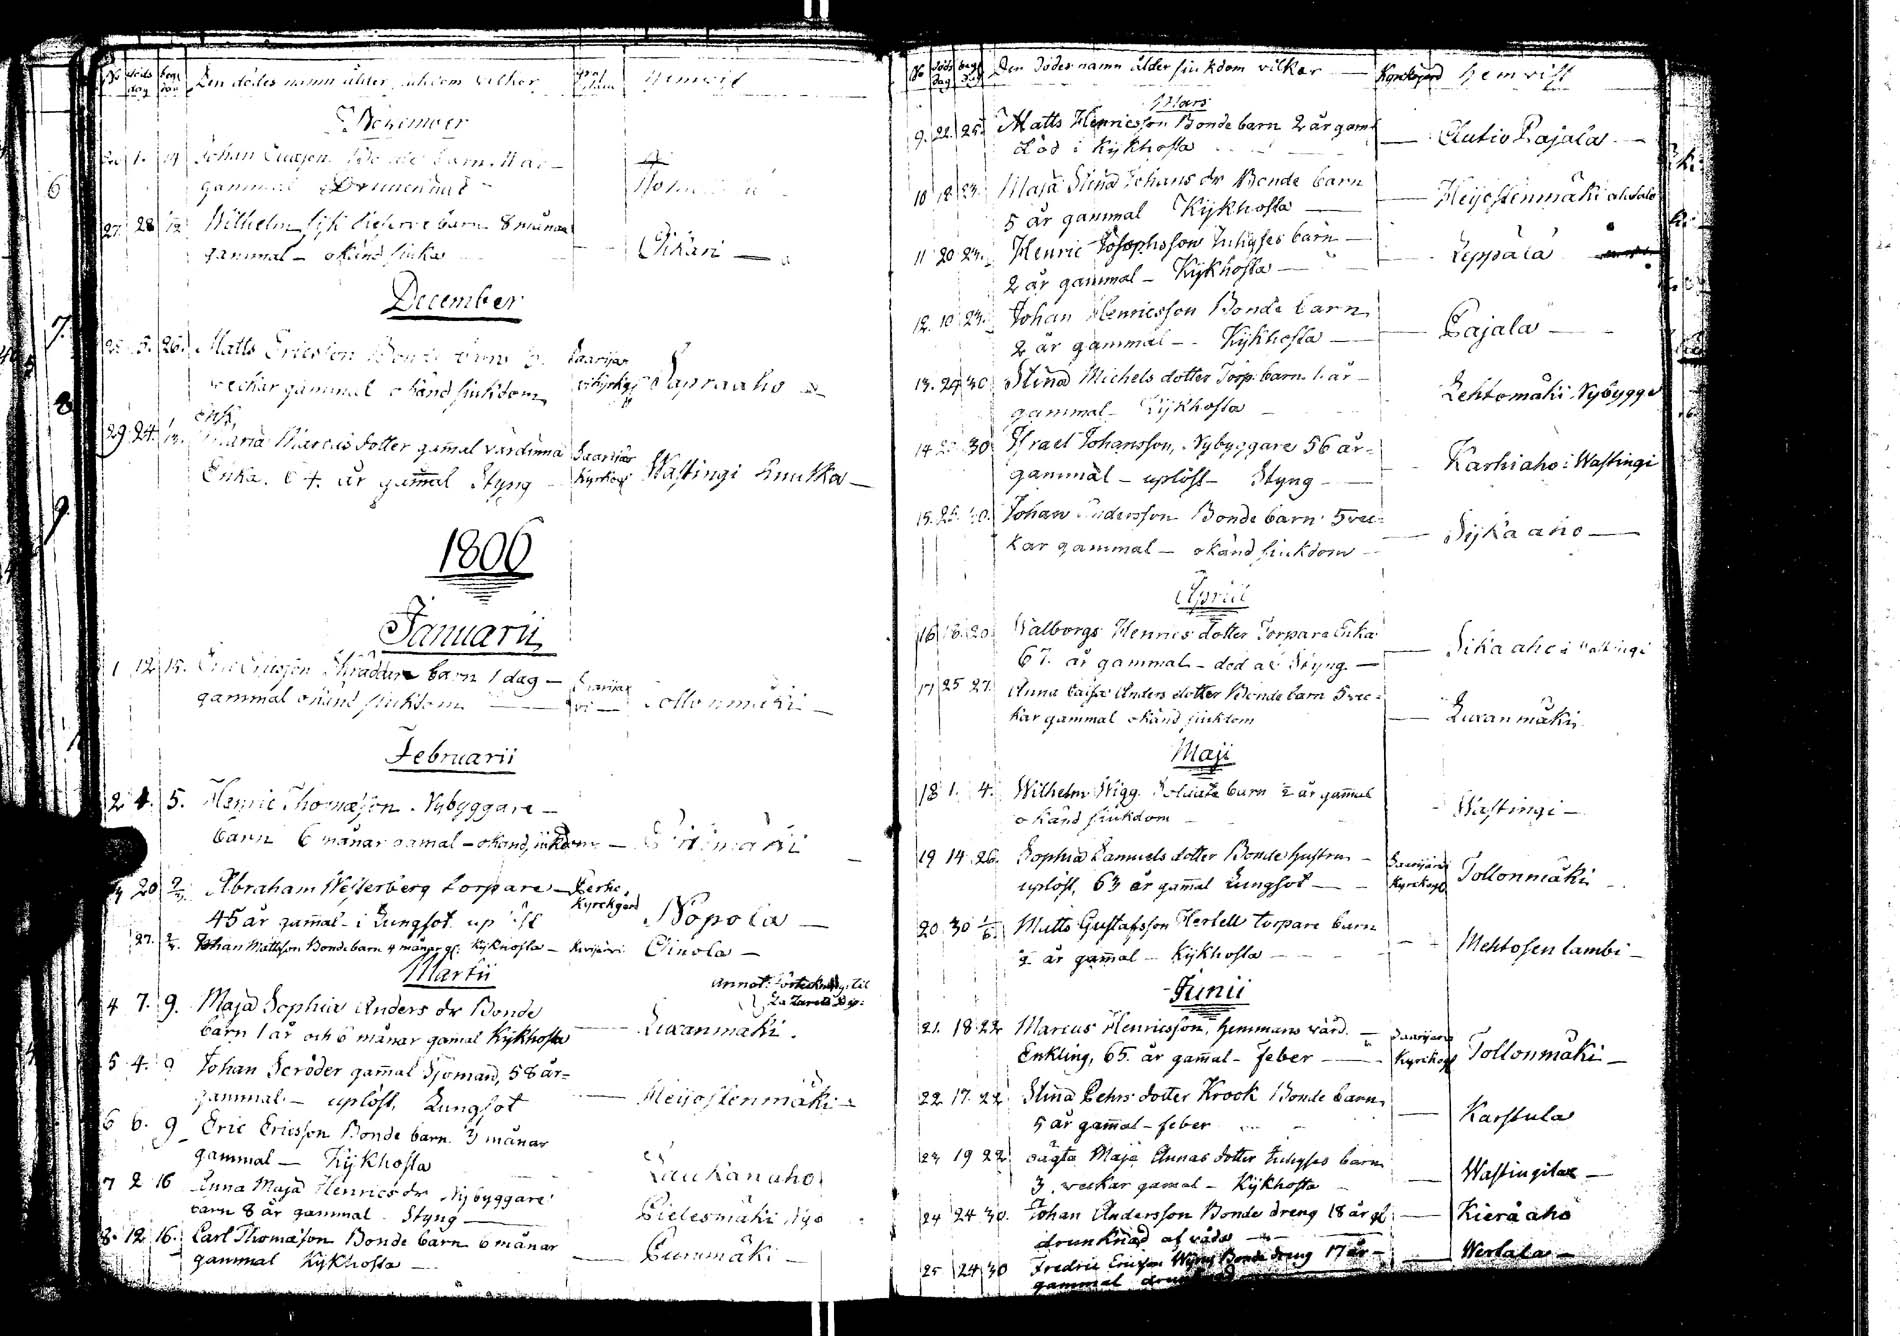 No döds dag begr dag Den dödes namn ålder siukdom vilkor hemvist
November
1. 14 Johan Bonde barn 11 år
gammal Drunknad
27. 28 1/12 Wilhelm barn 8 månar
gammal – okänd siuka — Oikari —
December
28. 5. 26. Matts Ericsson Bonde barn 3. Saarijär
veckor gammal okänd siukdom vi kyrkg Sapraaho
Enk,
29. 24. Maria Marcus dotter gamal värdinna Saarijär
Enka. 64. år gamal Styng – Kyrkog Wastingi Knutka —
1806
Januarii
1 12. 15. Eric Ericsson Skräddare barn 1 dag – Saarijär
gammal okänd siukdom — vi — Tollonmäki —
Februarii
2 4. 5. Henric Thomæsson Nybyggare –
barn 6 månar gamal – okänd siukdom –
20 2/3 Abraham Westerberg torpare – Perho Kyrckgård
45 år gamal – i Lungsot up Nopola —
27. 2/3. Johan Mattsson Bonde barn 4 månar gl. Kijkhosta – Karijärvi Oinola —
Martii
Annot: förtekning til
Lazarets Dep:
4 7. 9. Maja Sophia Anders dr Bonde
barn 1 år och 6 månar gamal Kijkhosta — Luxanmäki.
5 4. 9 Johan Scröder gamal Sjöman, 58 år=
gammal. – uplöst, Lungsot — Heijostenmäki –
6 6. 9 Eric Ericsson Bonde barn 3 månar
gammal — Kijkhosta — Laukanaho
7 2 16 Anna Maja Henrics dr Nybyggare
barn 8 år gammal. Styng — Pielesmäki Nyb
8. 12 16. Carl Thomæsson Bonde barn 6 månar
gammal Kijkhosta — Pummäki –
No döds dag begr dag Den dödes namn ålder siukdom vilkor — Kyrckogård hemvist
Mars
9. 22. 25. Matts Henricsson Bonde barn 2 år gaml
död i Kijkhosta — Autio Pajala —
10 18 23. Maja Stina Johans dr Bonde barn
5 år gammal Kijkhosta — Heijostenmäki
11 20 23. Henric Josephsson Inhyses barn —
2 år gammal – Kijkhosta — Leppälä
12. 10 23. Johan Henricsson Bonde barn
2 år gammal – Kijkhosta — Pajala —
13. 24 30 Stina Michels dotter Torp. barn 1. år –
gammal – Kijkhosta – Lehtomäki Nybygge
14 30 Israel Johansson, Nybyggare 56 år=
gammal – uplöst – Styng — Karhiaho i Wastingi
15. 25. 30. Johan Andersson Bonde barn 5 vec=
kar gammal – okänd siukdom – Sijkaaho —
April
16 16. 20 Walborgs Henrics dotter Torpare Enka
67. år gammal – död af Styng. — Sikaaho i Wastingi
17 25 27. Anna Caisa Anders dotter Bonde barn 5 vec=
kar gammal okänd siukdom — Luxanmäki
Maji
18 1. 4. Wilhelm Wigg. Soldate barn 1/2 år gamal
okänd siukdom – Wastingi –
19 14 26. Sophia Samuels dotter Bonde hustru – Saarijärvi
uplöst, 63 år gamal Lungsot — Kyrckog. Tollonmäki
20 30 1/6 Matts Gustafsson Hertell torpare barn
1/2 år gamal – Kijkhosta – Mehtosenlambi –
Junii
21. 18 22 Marcus Henricsson, hemmans värd. – Saarijärvi
Enkling, 65. år gamal – feber — Kyrckog Tollonmäki –
22 17. 22. Stina Pehrs dotter Krook Bonde barn
5 år gamal – feber — Karstula
23 19 22 oägta Maja Annas dotter Inhyses barn
3. veckar gamal – Kijkhosta — Wastingilax —
24 24 30. Johan Andersson Bonde dreng 18 år gl — Kieråaho
drunknad af våda —
25 24 30 Fredric Ericsson Bonde dreng 17 år – — Werlala –
gammal